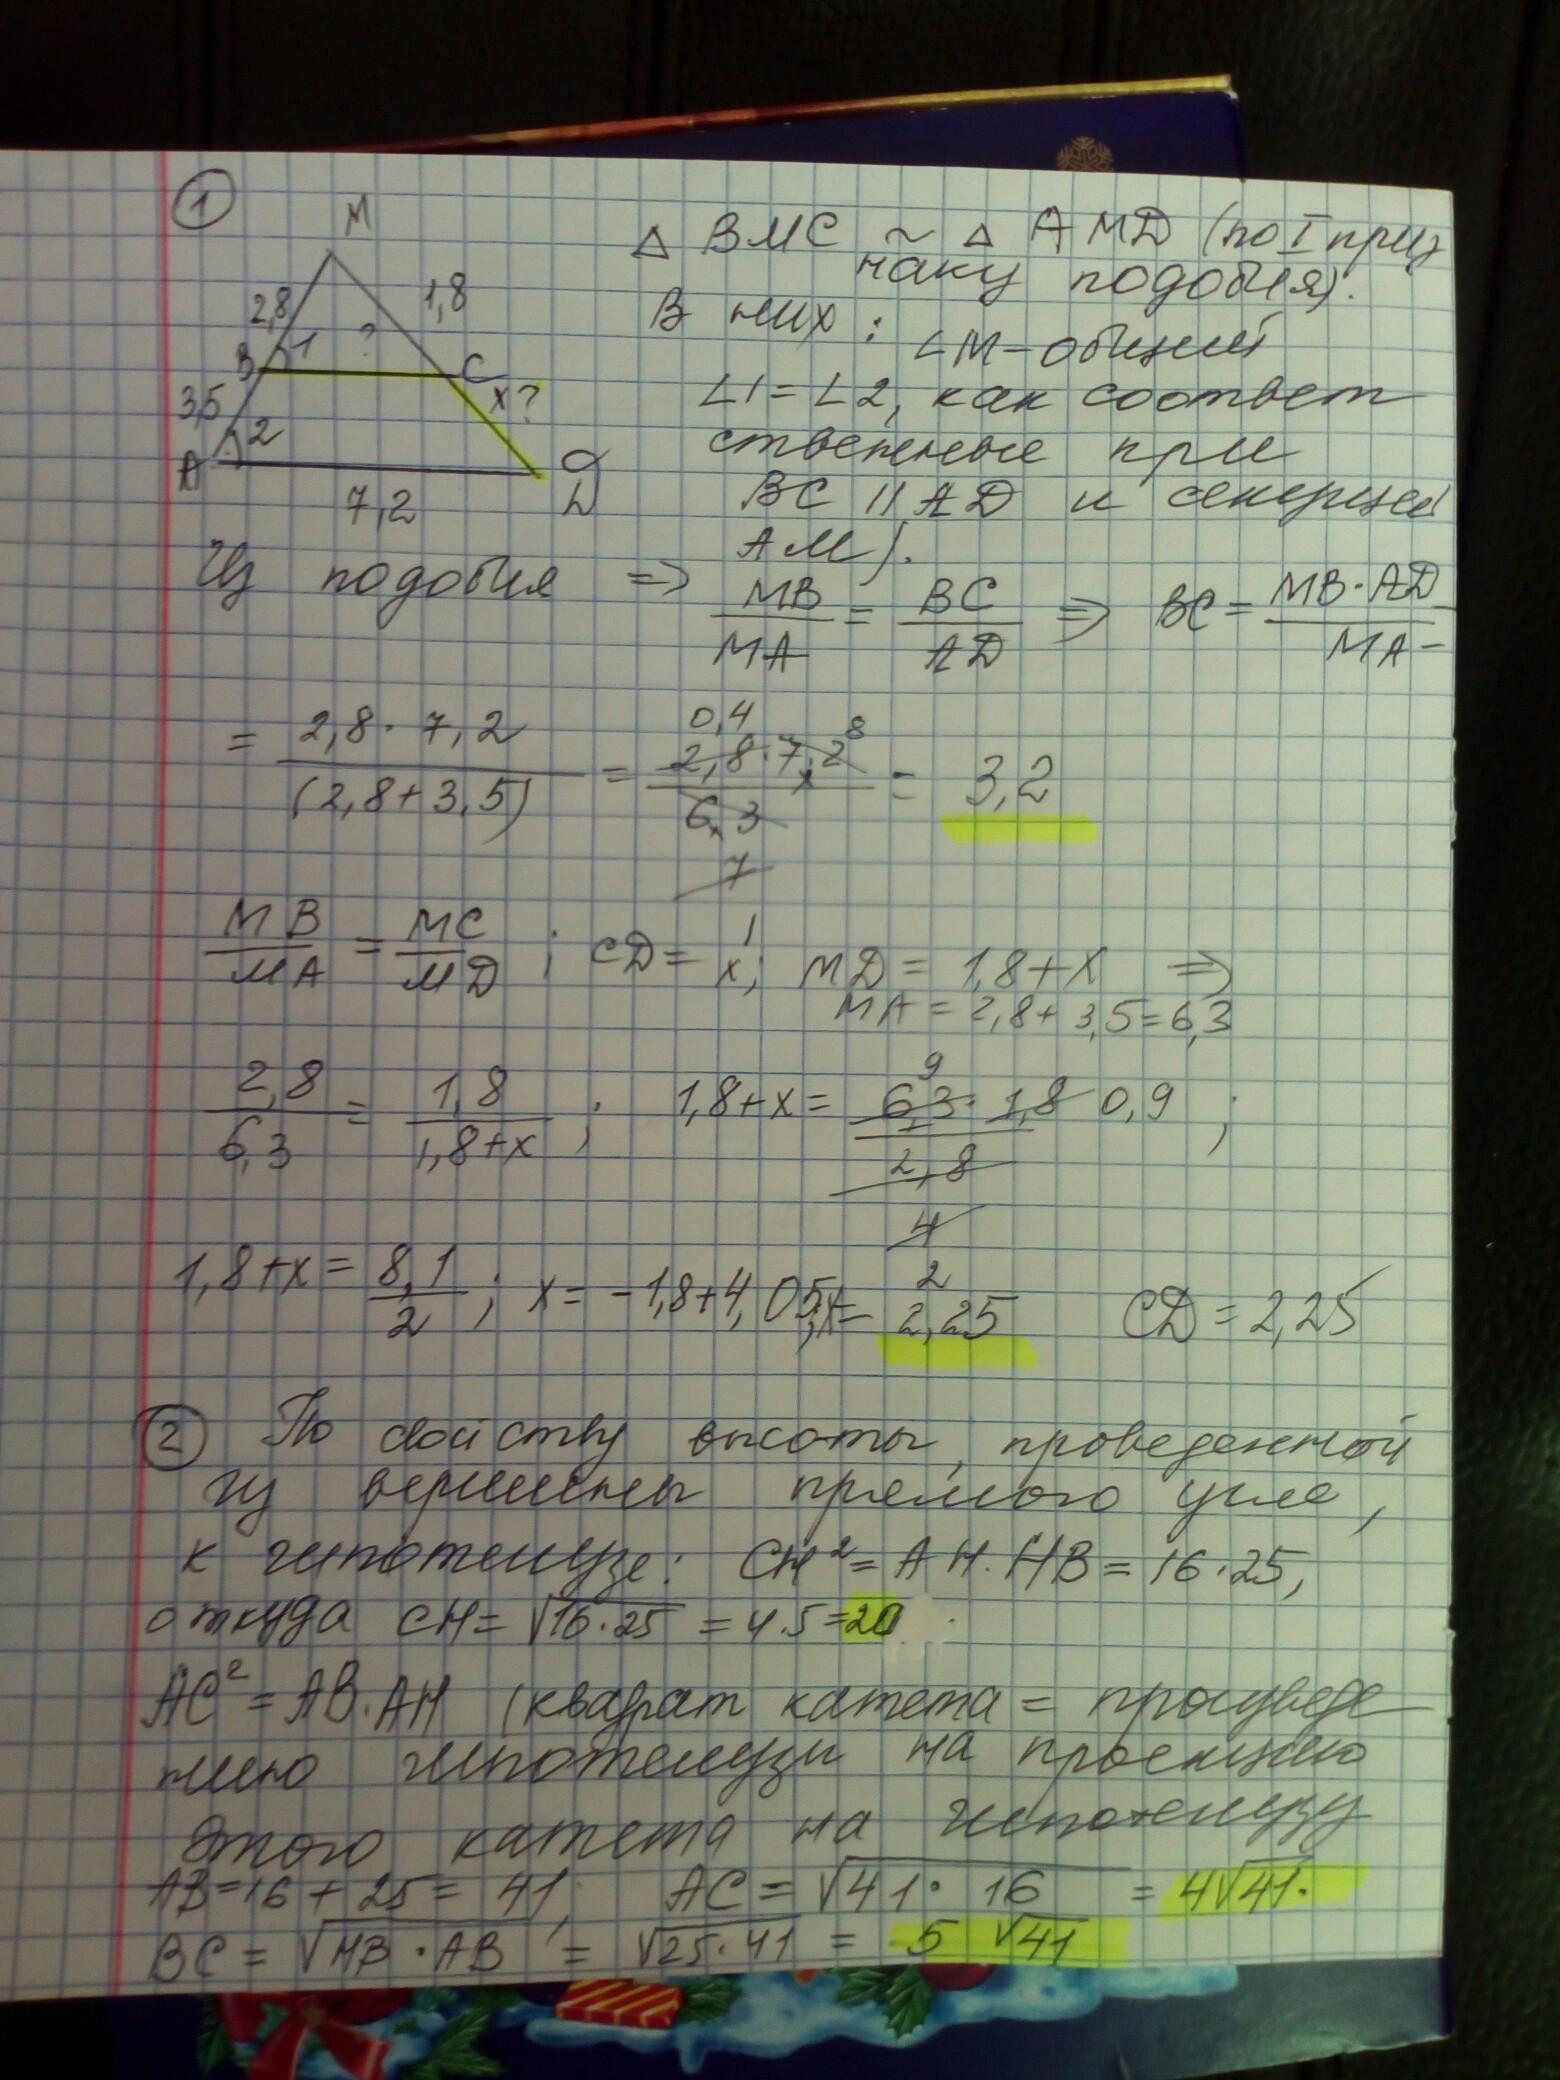 1
M
2,8
1,8
?
B
1
C
x?
3,5
2
A
D
7,2
△ BMC ~ △ AMD (по I приз
наку подобия).
В них: ∠M – общий
∠1 = ∠2, как соответ
ственные при
BC || AD и секущей
AM).
Из подобия => MB/MA = BC/AD => BC = MB·AD/MA =
= 2,8·7,2/(2,8+3,5) = 2,8·7,2/6,3 = 3,2
0,4
8
7
MB/MA = MC/MD; CD = x; MD = 1,8+x =>
1
MA = 2,8+3,5=6,3
2,8/6,3 = 1,8/1,8+x; 1,8+x = 6,3·1,8/2,8 0,9;
9
4
2
1,8+x = 8,1/2; x = -1,8+4,05; x= 2,25 CD = 2,25
2 По свойству высоты, проведенной
из вершины прямого угла,
к гипотенузе: CH² = AH·HB = 16·25,
откуда CH = √16·25 = 4·5=20
AC² = AB·AH (квадрат катета = произведе
нию гипотенузы на проекцию
этого катета на гипотенузу
AB = 16 + 25 = 41; AC = √41·16 = 4√41.
BC = √HB·AB = √25·41 = 5√41